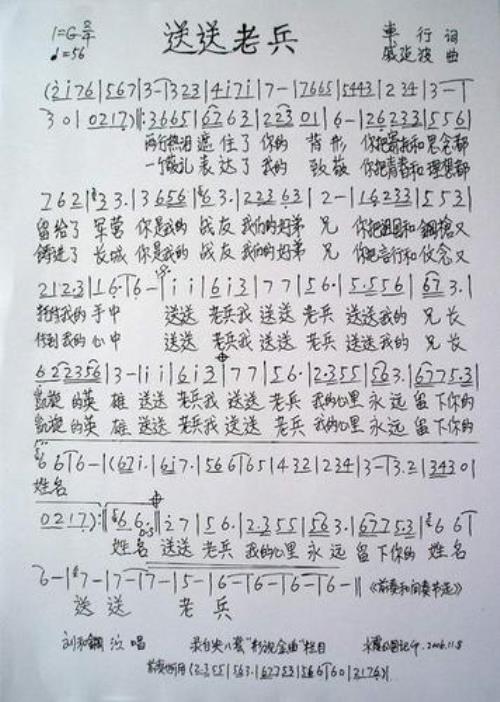 1=G 2/4
♩=56
送送老兵
車行 词
戚延波 曲
(2176|567|3-|323|4171|7-|7665|5443|234|3-|
301|0217)‖:3665|6763|22301|6-|26233|556|
两行热泪遮住了你的背影 你把寄托和思念都
一个敬礼表达了我的致敬 你把青春和理想都
762|33.|3656|63.|22363|2-|16233|553|
留给了军营 你是我的战友我们的好弟兄 你把祖国和鋼槍又
铸進了长城 你是我的战友我们的好弟兄 你把言行和信念又
2123|16.|6-|11|613|77|56.|5.556|673.|
转给我的手中 送送老兵我送送老兵 送送我的兄长
传到我的心中 送送老兵我送送老兵 送送我的兄长
622356|3-|11|613|77|56.|2.355|563.|67753|
凯旋的英雄 送送老兵我送送老兵 我的心里永远留下你的
凯旋的英雄 送送老兵我送送老兵 我的心里永远留下你的
66|6-|(671.|617.|566|65|432|234|3-|3-3.2|34301
姓名
0217):‖66.|27|56.|2.355|563.|67753|66|
姓名 送送老兵 我的心里永远留下你的姓名
6-|7-|7-|7-|5-|6-|6-|6-|6-‖《前奏和间奏节选》
送送老兵
刘和鋼 演唱 录自央八套"影视金曲"栏目 2006.11.8
前奏 (2.355|563.|67753|566|60|3176)|